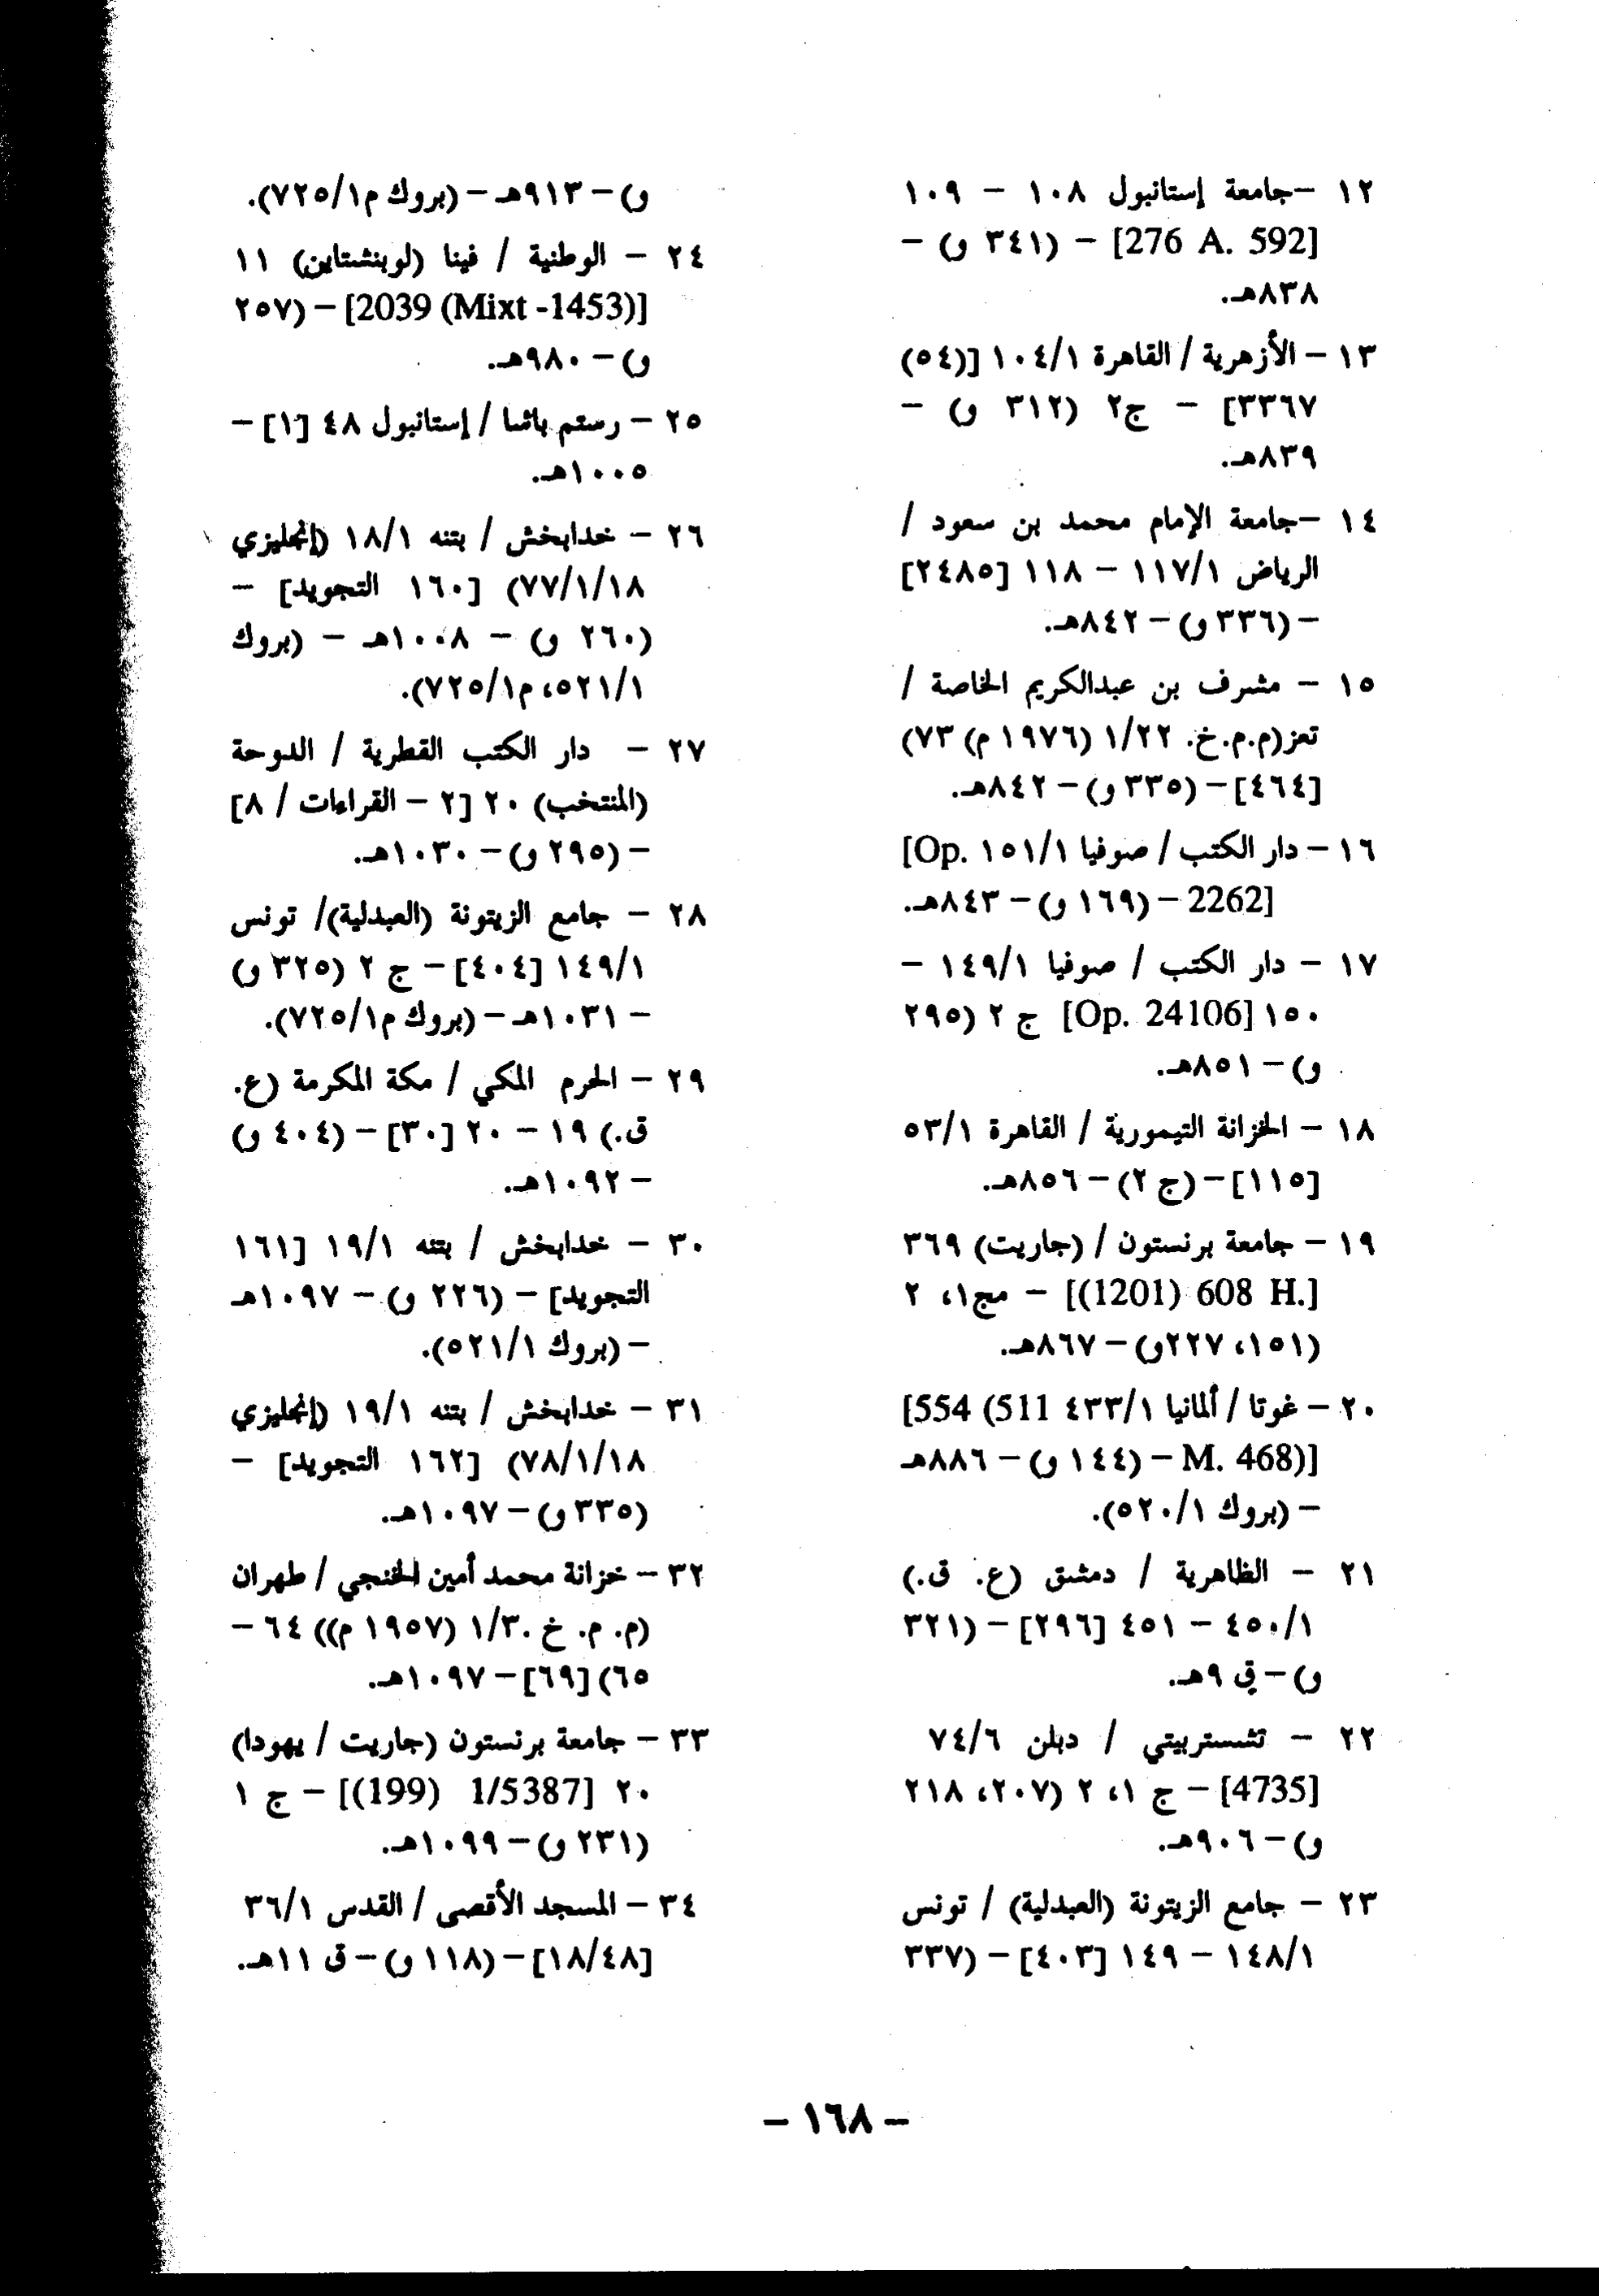 ١٢ –جامعة إستانبول ١٠٨ – ١٠٩
[276 A. 592] – (٣٤١ و) –
٨٣٨هـ.
١٣ – الأزهرية / القاهرة ١٠٤/١ [(٥٤)
٣٣٦٧] – ج٢ (٣١٢ و) –
٨٣٩هـ.
١٤ –جامعة الإمام محمد بن سعود /
الرياض ١١٧/١ – ١١٨ [٢٤٨٥]
– (٣٣٦ و) – ٨٤٢هـ.
١٥ – مشرف بن عبدالكريم الخاصة /
تعز(م.م.خ. ١/٢٢ (١٩٧٦ م) ٧٣)
[٤٦٤] – (٣٣٥ و) – ٨٤٢هـ.
١٦ – دار الكتب / صوفيا ١٥١/١ [Op.
2262] – (١٦٩ و) – ٨٤٣هـ.
١٧ – دار الكتب / صوفيا ١٤٩/١ –
١٥٠ [Op. 24106] ج ٢ (٢٩٥
و) – ٨٥١هـ.
١٨ – الخزانة التيمورية / القاهرة ٥٣/١
[١١٥] – (ج ٢) – ٨٥٦هـ.
١٩ – جامعة برنستون / (جاريت) ٣٦٩
[(1201) 608 H.] – مج١، ٢
(١٥١، ٢٢٧و) – ٨٦٧هـ.
٢٠ – غوتا / ألمانيا ٤٣٣/١ [554 (511
M. 468)] – (١٤٤ و) – ٨٨٦هـ
– (بروك ٥٢٠/١).
٢١ – الظاهرية / دمشق (ع. ق.)
٤٥٠/١ – ٤٥١ [٢٩٦] – (٣٢١
و) – ق ٩هـ.
٢٢ – تشستربيتي / دبلن ٧٤/٦
[4735] – ج ١، ٢ (٢٠٧، ٢١٨
و) – ٩٠٦هـ.
٢٣ – جامع الزيتونة (العبدلية) / تونس
١٤٨/١ – ١٤٩ [٤٠٣] – (٣٣٧
و) – ٩١٣هـ – (بروك م٧٢٥/١).
٢٤ – الوطنية / فينا (لوبنشتاين) ١١
[2039 (Mixt -1453)] – (٢٥٧
و) – ٩٨٠هـ.
٢٥ – رستم باشا / إستانبول ٤٨ [١] –
١٠٠٥هـ.
٢٦ – خدابخش / بتنه ١٨/١ (إنجليزي
٧٧/١/١٨) [١٦٠ التجويد] –
(٢٦٠ و) – ١٠٠٨هـ – (بروك
٥٢١/١، م٧٢٥/١).
٢٧ – دار الكتب القطرية / الدوحة
(المنتخب) ٢٠ [٢ – القراءات / ٨]
– (٢٩٥ و) – ١٠٣٠هـ.
٢٨ – جامع الزيتونة (العبدلية)/ تونس
١٤٩/١ [٤٠٤] – ج ٢ (٣٢٥ و)
– ١٠٣١هـ – (بروك م٧٢٥/١).
٢٩ – الحرم المكي / مكة المكرمة (ع.
ق.) ١٩ – ٢٠ [٣٠] – (٤٠٤ و)
– ١٠٩٢هـ.
٣٠ – خدابخش / بتنه ١٩/١ [١٦١
التجويد] – (٢٢٦ و) – ١٠٩٧هـ
– (بروك ٥٢١/١).
٣١ – خدابخش / بتنه ١٩/١ (إنجليزي
٧٨/١/١٨) [١٦٢ التجويد] –
(٣٣٥ و) – ١٠٩٧هـ.
٣٢ – خزانة محمد أمين الخنجي / طهران
(م. م. خ .١/٣ (١٩٥٧ م)) ٦٤ –
٦٥) [٦٩] – ١٠٩٧هـ.
٣٣ – جامعة برنستون (جاريت / يهودا)
٢٠ [1/5387 (199)] – ج ١
(٢٣١ و) – ١٠٩٩هـ.
٣٤ – المسجد الأقصى / القدس ٣٦/١
[١٨/٤٨] – (١١٨ و) – ق ١١هـ.
– ١٦٨ –